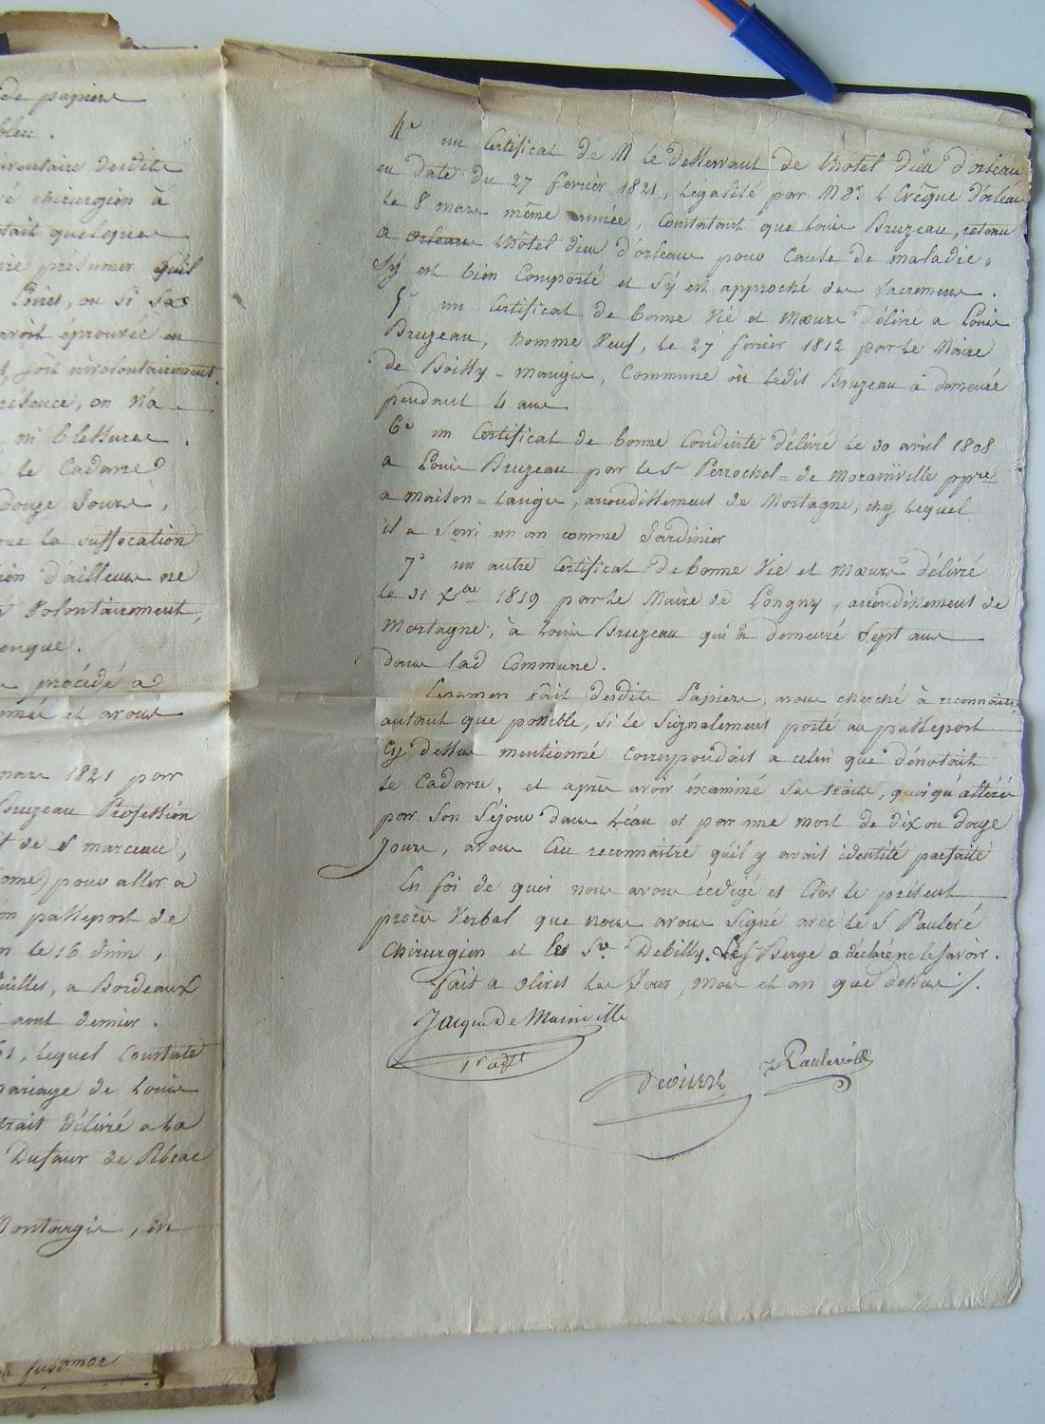 de papiers
bleu.
circulaire desdits
ré chirurgien à
était quelques
ire présumer qu'il
Loiret, ou si ses
avoit éprouvée en
soit involontairement.
présence, on n'a
ni blessures.
le Cadavre
douze Jours,
que la suffocation
ien d'ailleurs ne
volontairement,
conque.
procédé a
et avons
mars 1821 par
Bruzeau Profession
t de St marceau,
pour aller a
on passeport de
n le 16 Juin,
a Bordeaux
aout dernier.
lequel Constate
mariage de Louis
trait délivré a la
Dufaur de Pibrac
Montargis, en
4° un Certificat de M le desservant de L'hôtel Dieu d'orleans
en date du 27 fevrier 1821, Legalisé par Mgr. L'Evêque d'orleans
Le 8 mars même année, Constatant que Louis Bruzeau, retenu
a orleans L'hôtel dieu d'orleans pour Cause de maladie,
s'y est bien Comporté et s'y est approché des Sacremens.
5° un Certificat de bonne Vie et Mœurs délivré a Louis
Bruzeau, homme Veuf, le 27 fevrier 1812 par le Maire
de Boissy-maugis, Commune où Ledit Bruzeau a demeuré
pendant 4 ans
6° un Certificat de bonne Conduite délivré le 30 avril 1808
a Louis Bruzeau par le Sr Perrochel = de Morainville ppre
a maison = Laugis, arrondissement de Mortagne, chez Lequel
il a servi un an comme Jardinier
7° un autre Certificat de bonne Vie et Mœurs délivré
Le 31 Xbre 1819 par le Maire de Longny, arrondissement de
Mortagne, à Louis Bruzeau qui a demeuré Sept ans
dans lad Commune.
L'examen fait desdits Papiers, avons cherché à reconnaitre,
autant que possible, si le Signalement porté au passeport
Cy dessus mentionné Correspondait a celui que dénotait
Le Cadavre, et après avoir éxaminé ses traits, quoiqu'altérés
par Son Séjour dans L'éau et par une mort de dix ou douze
Jours, avons Cru reconnaitre qu'il y avait identité parfaite
En foi de quoi nous avons rédigé et Clos le présent
procès Verbal que nous avons Signé avec le S Paulevé
Chirurgien et les Srs Debilly. Le S Berge a déclaré ne le savoir.
fait a olivet Les Jour, Mois et an que dessus ./.
Jacque De Mainville
1er adjt
Paulevé